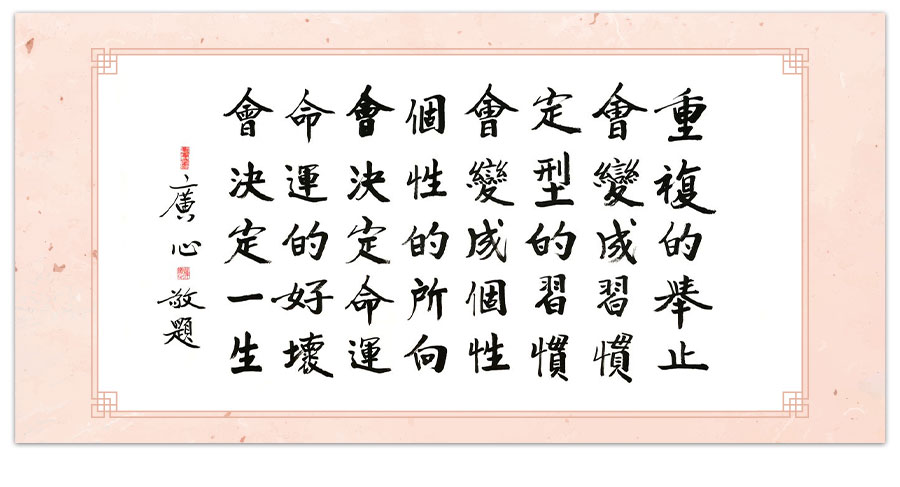 重複的舉止
會變成習慣
定型的習慣
會變成個性
個性的所向
會決定命運
命運的好壞
會決定一生
廣心敬題